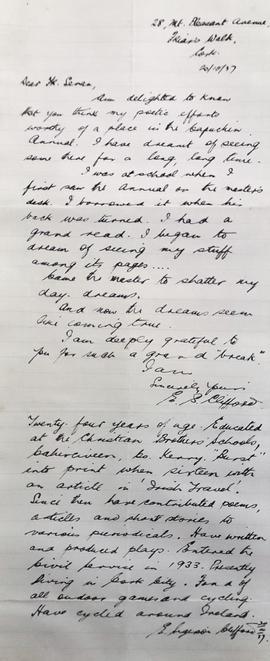 28, Mt. Pleasant Avenue,
Friars Walk,
Cork.
20/10/37
Dear Fr. Senan,
Am delighted to know
that you think my poetic efforts
worthy of a place in the Capuchin
Annual. I have dreamt of seeing
some there for a long, long time.
I was at school when I
first saw the Annual on the master's
desk. I borrowed it when his
back was turned. I had a
grand read. I began to
dream of seeing my stuff
among its pages....
Came the master to shatter my
day-dreams.
And now the dreams seem
like coming true.
I am deeply grateful to
you for such a grand "break"
I am
Sincerely Yours
E. S. Clifford
Twenty-four years of age. Educated
at the Christian Brothers' Schools,
Cahirciveen, Co. Kerry. "Burst"
into print when sixteen with
an article in "Irish Travel".
Since then have contributed poems,
articles and short stories to
various periodicals. Have written
and produced plays. Entered the
Civil Service in 1933. Presently
living in Cork City. Fond of
all outdoor games and cycling.
Have cycled around Ireland.
Clifford